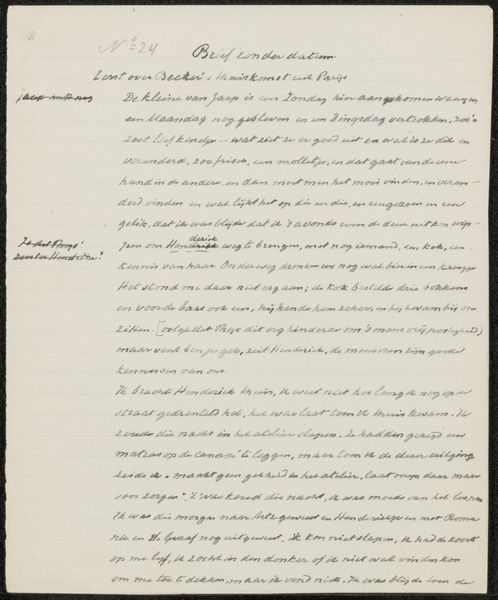 No 24
Brief zonder datum
Eerst over Becker's thuiskomst uit Parijs
De kleine van Jaap is een Zondag hier aangekomen waren
een Maandag nog gebleven en een Dingsdag vertrokken, zoo'n
zoet lief kindje – wat ziet ze er goed uit en wat is ze dik en
veranderd, zoo frisch, een molletje, en dat gaat van de eene
hand in de andere, en dan moet men het mooi vinden, en veran-
derd vinden en wat lijkt het op die en die, en ongezien en on-
gelik, dat ik was blijde dat ik 's avonds even de deur uit kon wip-
Is dat Thijs'
zuster Hendrika?
pen om Henderick weg te brengen, met nog iemand, een kok, een
kennis van haar. Onderweg dronken we nog wat bier in een kroegje
Het stond me daar niet erg aan; de kok bestelde drie bokken
en voor de baas ook een, hij kende hem zeker, en hij kwam bij ons
zitten. (volgt dat Thijs dit erg hinderde om 's mans vrijpostigheid)
maar vent ben je gek, zeit Henderick, de menschen zijn goede
kennissen van ons.
Ik bracht Henderick thuis, ik weet niet hoe lang ik nog op de
straat gedrenteld heb, het was laat toen ik thuis kwam. Ik
zoude die nacht in het atelier slapen. Ze hadden gezegd een
matras op de canapé te leggen, maar toen ik de deur uitging
zeide ik: maakt geen gekheid in het atelier, laat mij daar maar
voor zorgen. 't Was koud die nacht, ik was moede van het loopen
Ik was die morgen naar Artz geweest en Hendrikje en met Roma
nie en de Graaf nog uitgeweest. Ik kon niet slapen, ik had de koorts
op me lijf, ik zocht in den donker of ik niet wat vinden kon
om me toe te dekken, maar ik vond niets. Ik was blijde toen de